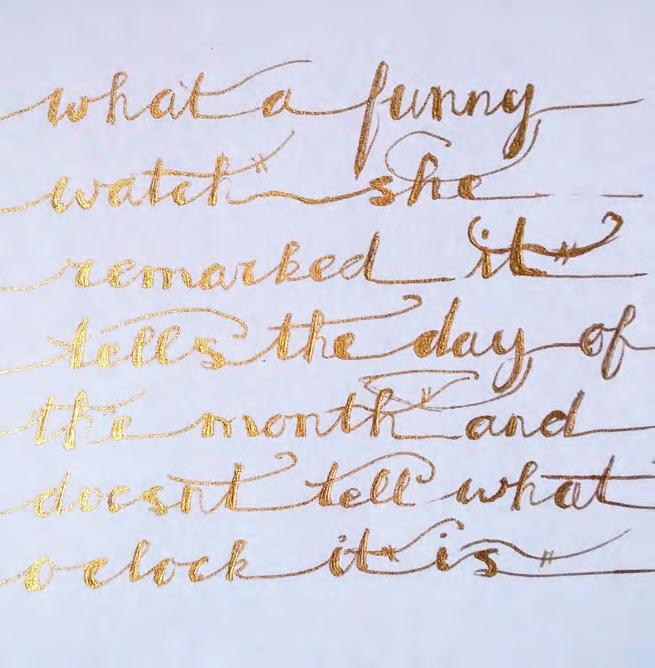 what a funny
watch she
remarked it
tells the day of
the month and
doesnt tell what
o clock it is